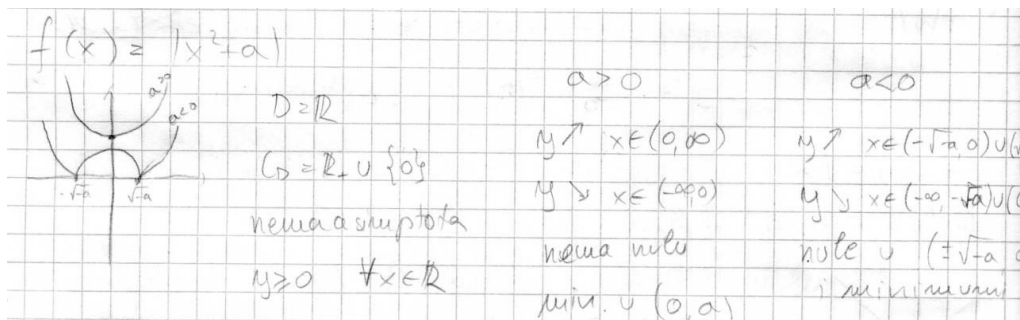 f(x) = |x²+a|
a>0
a<0
-√-a
√-a
D=ℝ
CD = ℝ+ ∪ {0}
nema asimptota
y≥0 ∀x∈ℝ
a>0
y↗ x∈(0,∞)
y↘ x∈(-∞,0)
nema nulu
min. u (0,a)
a<0
y↗ x∈(-√-a,0)∪(√
y↘ x∈(-∞,-√-a)∪(0
nule u (±√-a,
i minimumi